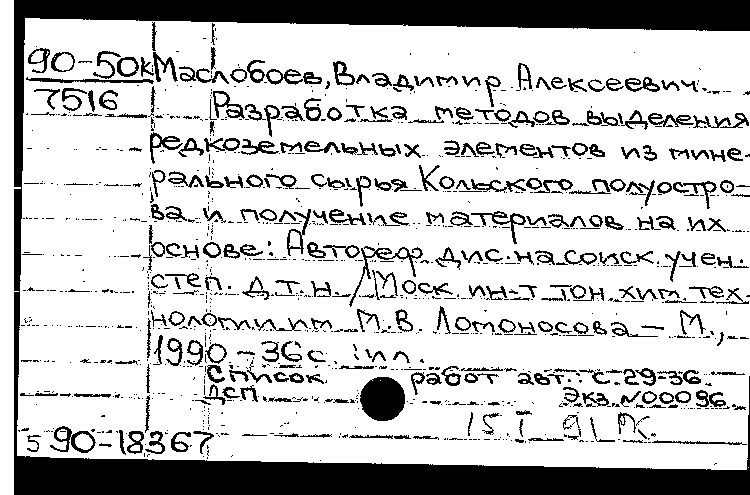 90-50к Маслобоев, Владимир Алексеевич.
7516 Разработка методов выделения
редкоземельных элементов из мине-
рального сырья Кольского полуостро-
ва и получение материалов на их
основе: Автореф. дис. на соиск. учен.
степ. д.т.н. / Моск. ин-т тон. хим. тех-
нологии им. М.В. Ломоносова - М.,
1990 - 36 с. : ил.
Список работ авт.: с. 29-36.
ДСП. Экз. N00096.
15 I 91
5 90-18367